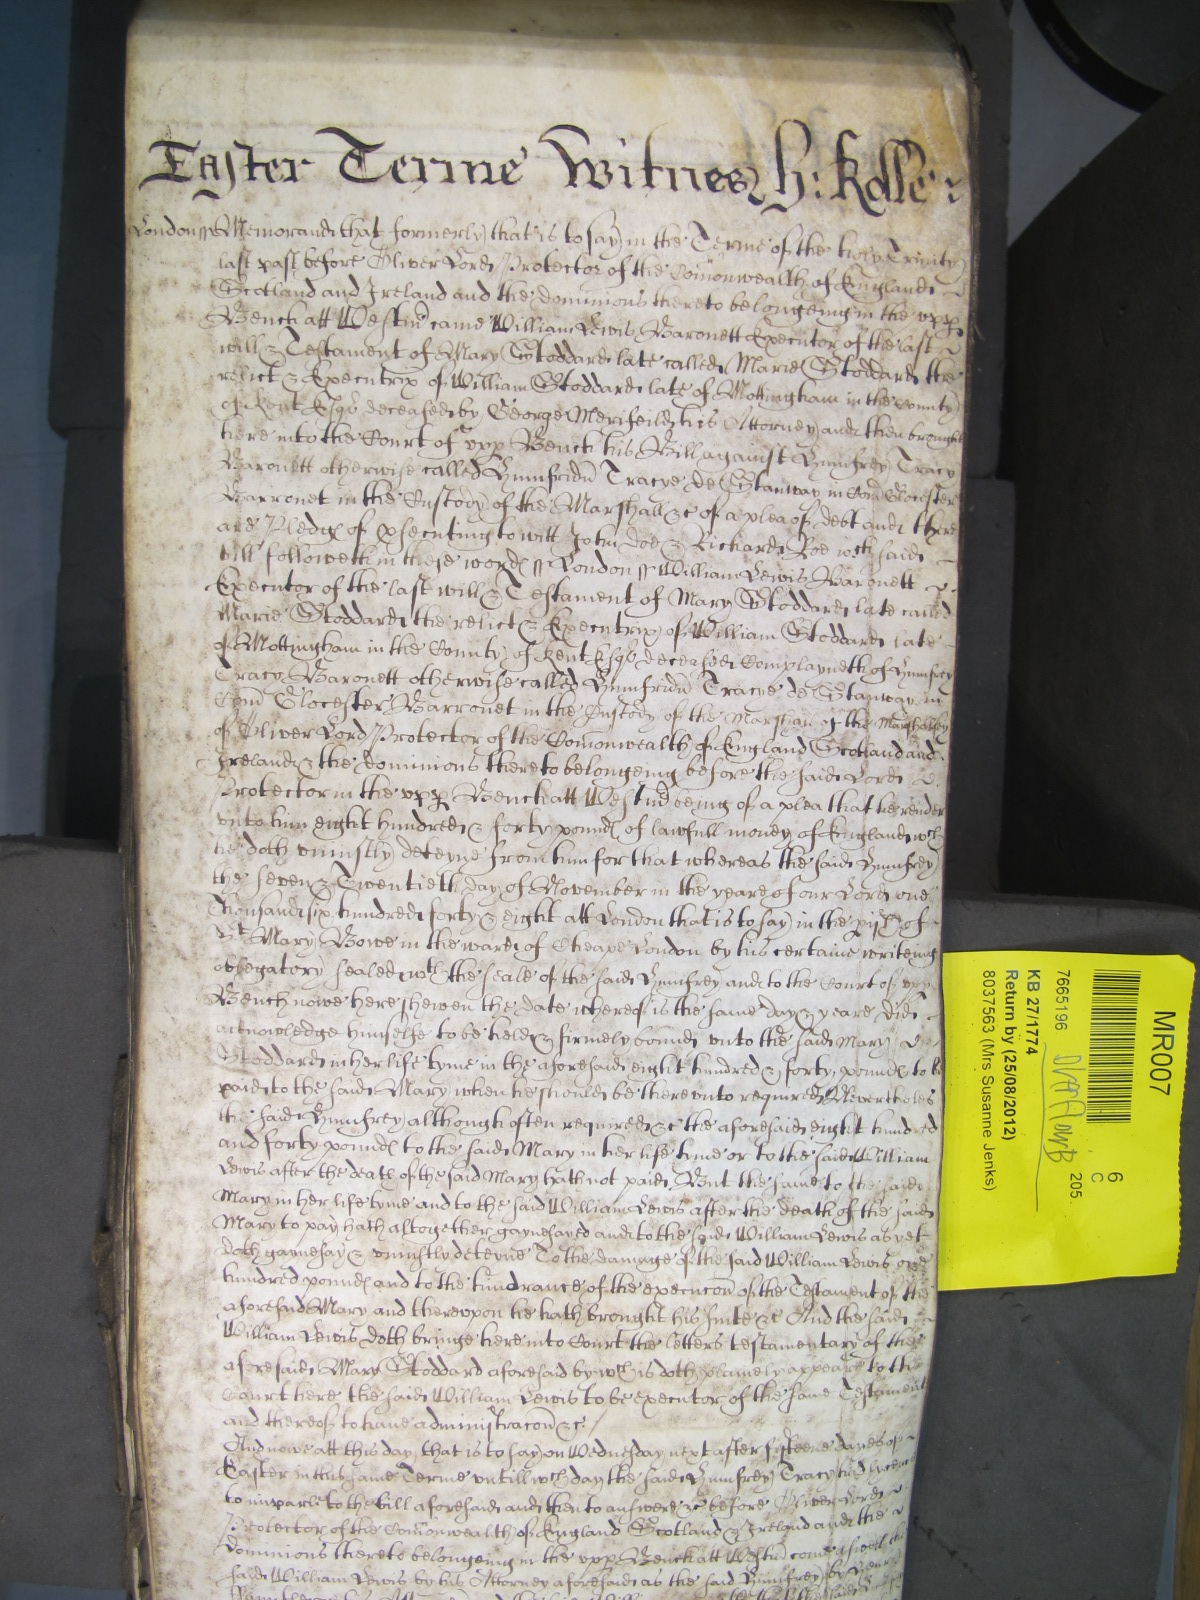 Easter Terme Witnes H: Rolle
London ss Memorand that formerly that is to say in the Terme of the holy Trinity
last past before Oliver Lord Protector of the Comonwealth of England
Scotland and Ireland and the dominions thereto belongeing in the upp
Bench att Westm came William Lewis Baronett Executor of the last
will & Testament of Mary Stoddard late called Marie Stoddard the
relict & Executrix of William Stoddard late of Mottingham in the County
of Kent Esqr deceased by George Merifeild his Attorney and then brought
here into the Court of upp Bench his Bill against Humfrey Tracy
Baronett otherwise called Humfridu Tracye de Stanway in Com Glocester
Barronet in the Custody of the Marshall &c of a plea of debt and there
are Pledges of psecuting to witt John Doe & Richard Roe wch said
bill followeth in these words ss London ss William Lewis Baronett
Executor of the last will & Testament of Mary Stoddard late called
Marie Stoddard the relict & Executrix of William Stoddard late
of Mottingham in the County of Kent Esqr deceased Complayneth of Humfrey
Tracy Baronett otherwise called Humfridu Tracye de Stanway in
Com Glocester Barronet in the Custody of the Marshall of the Marshalsey
of Oliver Lord Protector of the Comonwealth of England Scotland and
Ireland & the dominions thereto belongeing before the said Lord
Protector in the upp Bench att Westm being of a plea that he render
unto him eight hundred & forty pounds of lawfull money of England wch
he doth uniustly deteyne from him for that whereas the said Humfrey
the seven & Twentieth day of November in the yeare of our Lord one
thousand six hundred forty & eight att London that is to say in the pish of
St Mary Bowe in the ward of Cheape London by his certaine writeing
obligatory sealed wth the seale of the said Humfrey and to the Court of upp
Bench nowe here shewen the date whereof is the same day & yeare did
acknowledge himselfe to be held & firmely bound unto the said Mary
Stoddard in her life tyme in the aforesaid eight hundred & forty pounds to be
paid to the said Mary when he should be thereunto required Neverthelesse
the said Humfrey although often required &c the aforesaid eight hundred
and forty pounds to the said Mary in her life tyme or to the said William
Lewis after the death of the said Mary hath not paid But the same to the said
Mary in her life tyme and to the said William Lewis after the death of the said
Mary to pay hath altogether gaynesayed and to the said William Lewis as yet
doth gaynesay & uniustly deteyne To the damage of the said William Lewis one
hundred pounds and to the hindrance of the execucon of the Testament of the
aforesaid Mary and thereupon he hath brought his suite &c And the said
William Lewis doth bringe here into Court the letters testamentary of the
aforesaid Mary Stoddard aforesaid by wch is doth plainely appeare to the
Court here the said William Lewis to be executor of the same Testament
and thereof to have administracon &c
And nowe att this day that is to say on Wednesday next after fifteene dayes of
Easter in this same Terme untill wch day the said Humfrey Tracy had lycence
to imparle to the bill aforesaid and then to answere &c before Oliver Lord
Protector of the Comonwealth of England Scotland & Ireland and the
dominions thereto belongeing in the upp Bench att Westm come aswell the
said William Lewis by his Attorney aforesaid as the said Humfrey by Henry
MR007
7665196
6
C
205
KB 27/1774
Return by (25/08/2012)
8037563 (Mrs Susanne Jenks)